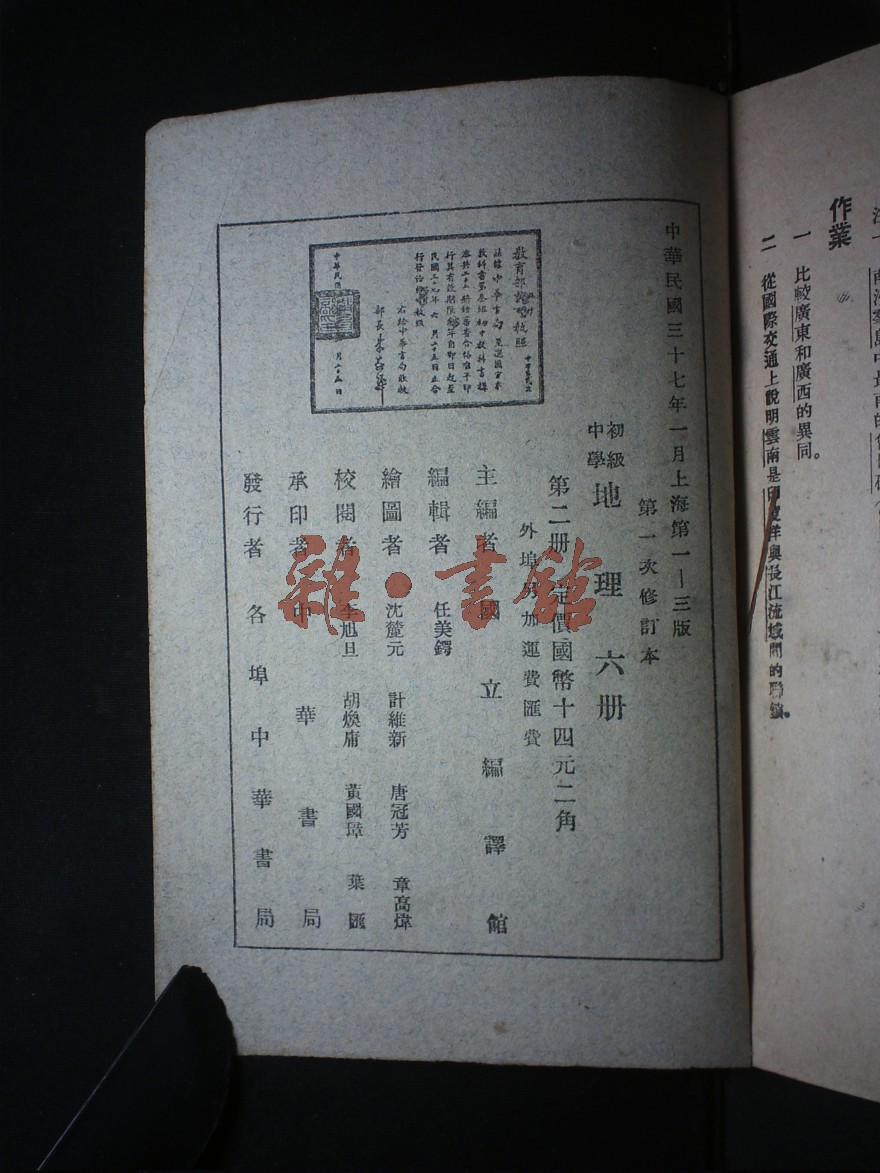 作業
一 比較廣東和廣西的異同。
二 從國際交通上說明雲南是印度洋與長江流域間的聯鎖。
中華民國三十七年一月上海第一—三版
第一次修訂本
初級中學 地理 六册
第二册 定價國幣十四元二角
外埠另加運費匯費
主編者 國立編譯館
編輯者 任美鍔
繪圖者 沈麓元 計維新 唐冠芳 章高煒
校閱者 李旭旦 胡煥庸 黃國璋 葉匯
承印者 中華書局
發行者 各埠中華書局
教育部
執照
部長
右給中華書局收執
中華民國
雜·書館